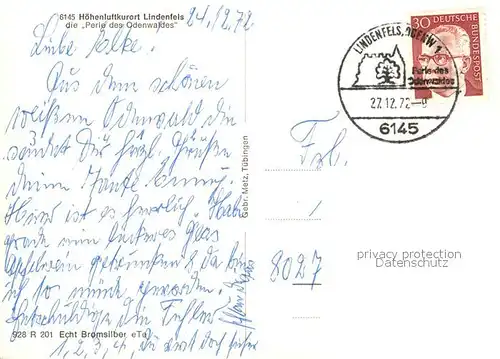 6145 Höhenluftkurort Lindenfels
die "Perle des Odenwaldes"
24.12.72
Liebe Elke.
Aus dem schönen
weißen Odenwald die
sendet Dir herzl. Grüße
deine Tante
Hier ist es herrlich. Habe
grade ein leckeres Glas
Apfelwein getrunken, da bin
ich so müde geworden.
Entschuldige die Fehler
1, 2, 3, 4, du erst doch sicher
928 R 201 Echt Bromsilber
Gebr. Metz, Tübingen
LINDENFELS, ODENW 1
Perle des
Odenwaldes
27.12.72-9
6145
30 DEUTSCHE
BUNDESPOST
Frl.
8027
privacy protection
Datenschutz